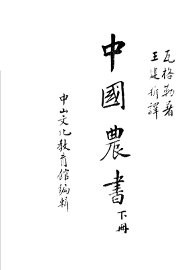 瓦格勒著
王建新譯
中國農書
下冊
中山文化教育館編輯